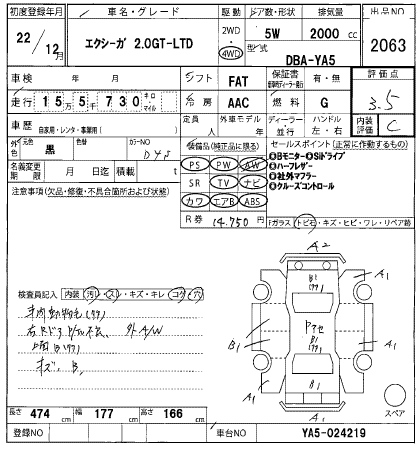 初度登録年月 車名・グレード 駆動 ドア数・形状 排気量 出品NO
22/12月 エクシーガ 2.0GT-LTD 2WD・4WD 5W 2000cc 2063
型式 DBA-YA5
車検 年 月 シフト FAT 保証書 有・無 評価点
走行 15万5千730キロ・マイル 冷房 AAC 燃料 G 3.5
車歴 自家用・レンタ・事業用( ) 定員 人 外車モデル 年 ディーラー 並行 ハンドル 左・右 内装 C
外色 元色 黒 色替 カラーNO D4S
装備品(純正品に限る) セールスポイント(正常に作動するもの)
PS PW AW
SR TV ナビ
カワ エアB ABS
●Bモニター●Siドライブ
●ハーフレザー
●社外マフラー
●クルーズコントロール
名義変更期限 月 日迄 積載 t
注意事項(欠品・修復・不具合箇所および状態)
R券 14.750円
Fガラス トビ石・キズ・ヒビ・ワレ・リペア跡
検査員記入 内装(汚レ・スレ・キズ・キレ・コゲ・穴)
外A/W
キズ、B1
A2
B1
A1
A1
B1
B1
A1
B1
A1
A1
A1
スペア
長さ 474cm 幅 177cm 高さ 166cm
登録NO 車台NO YA5-024219